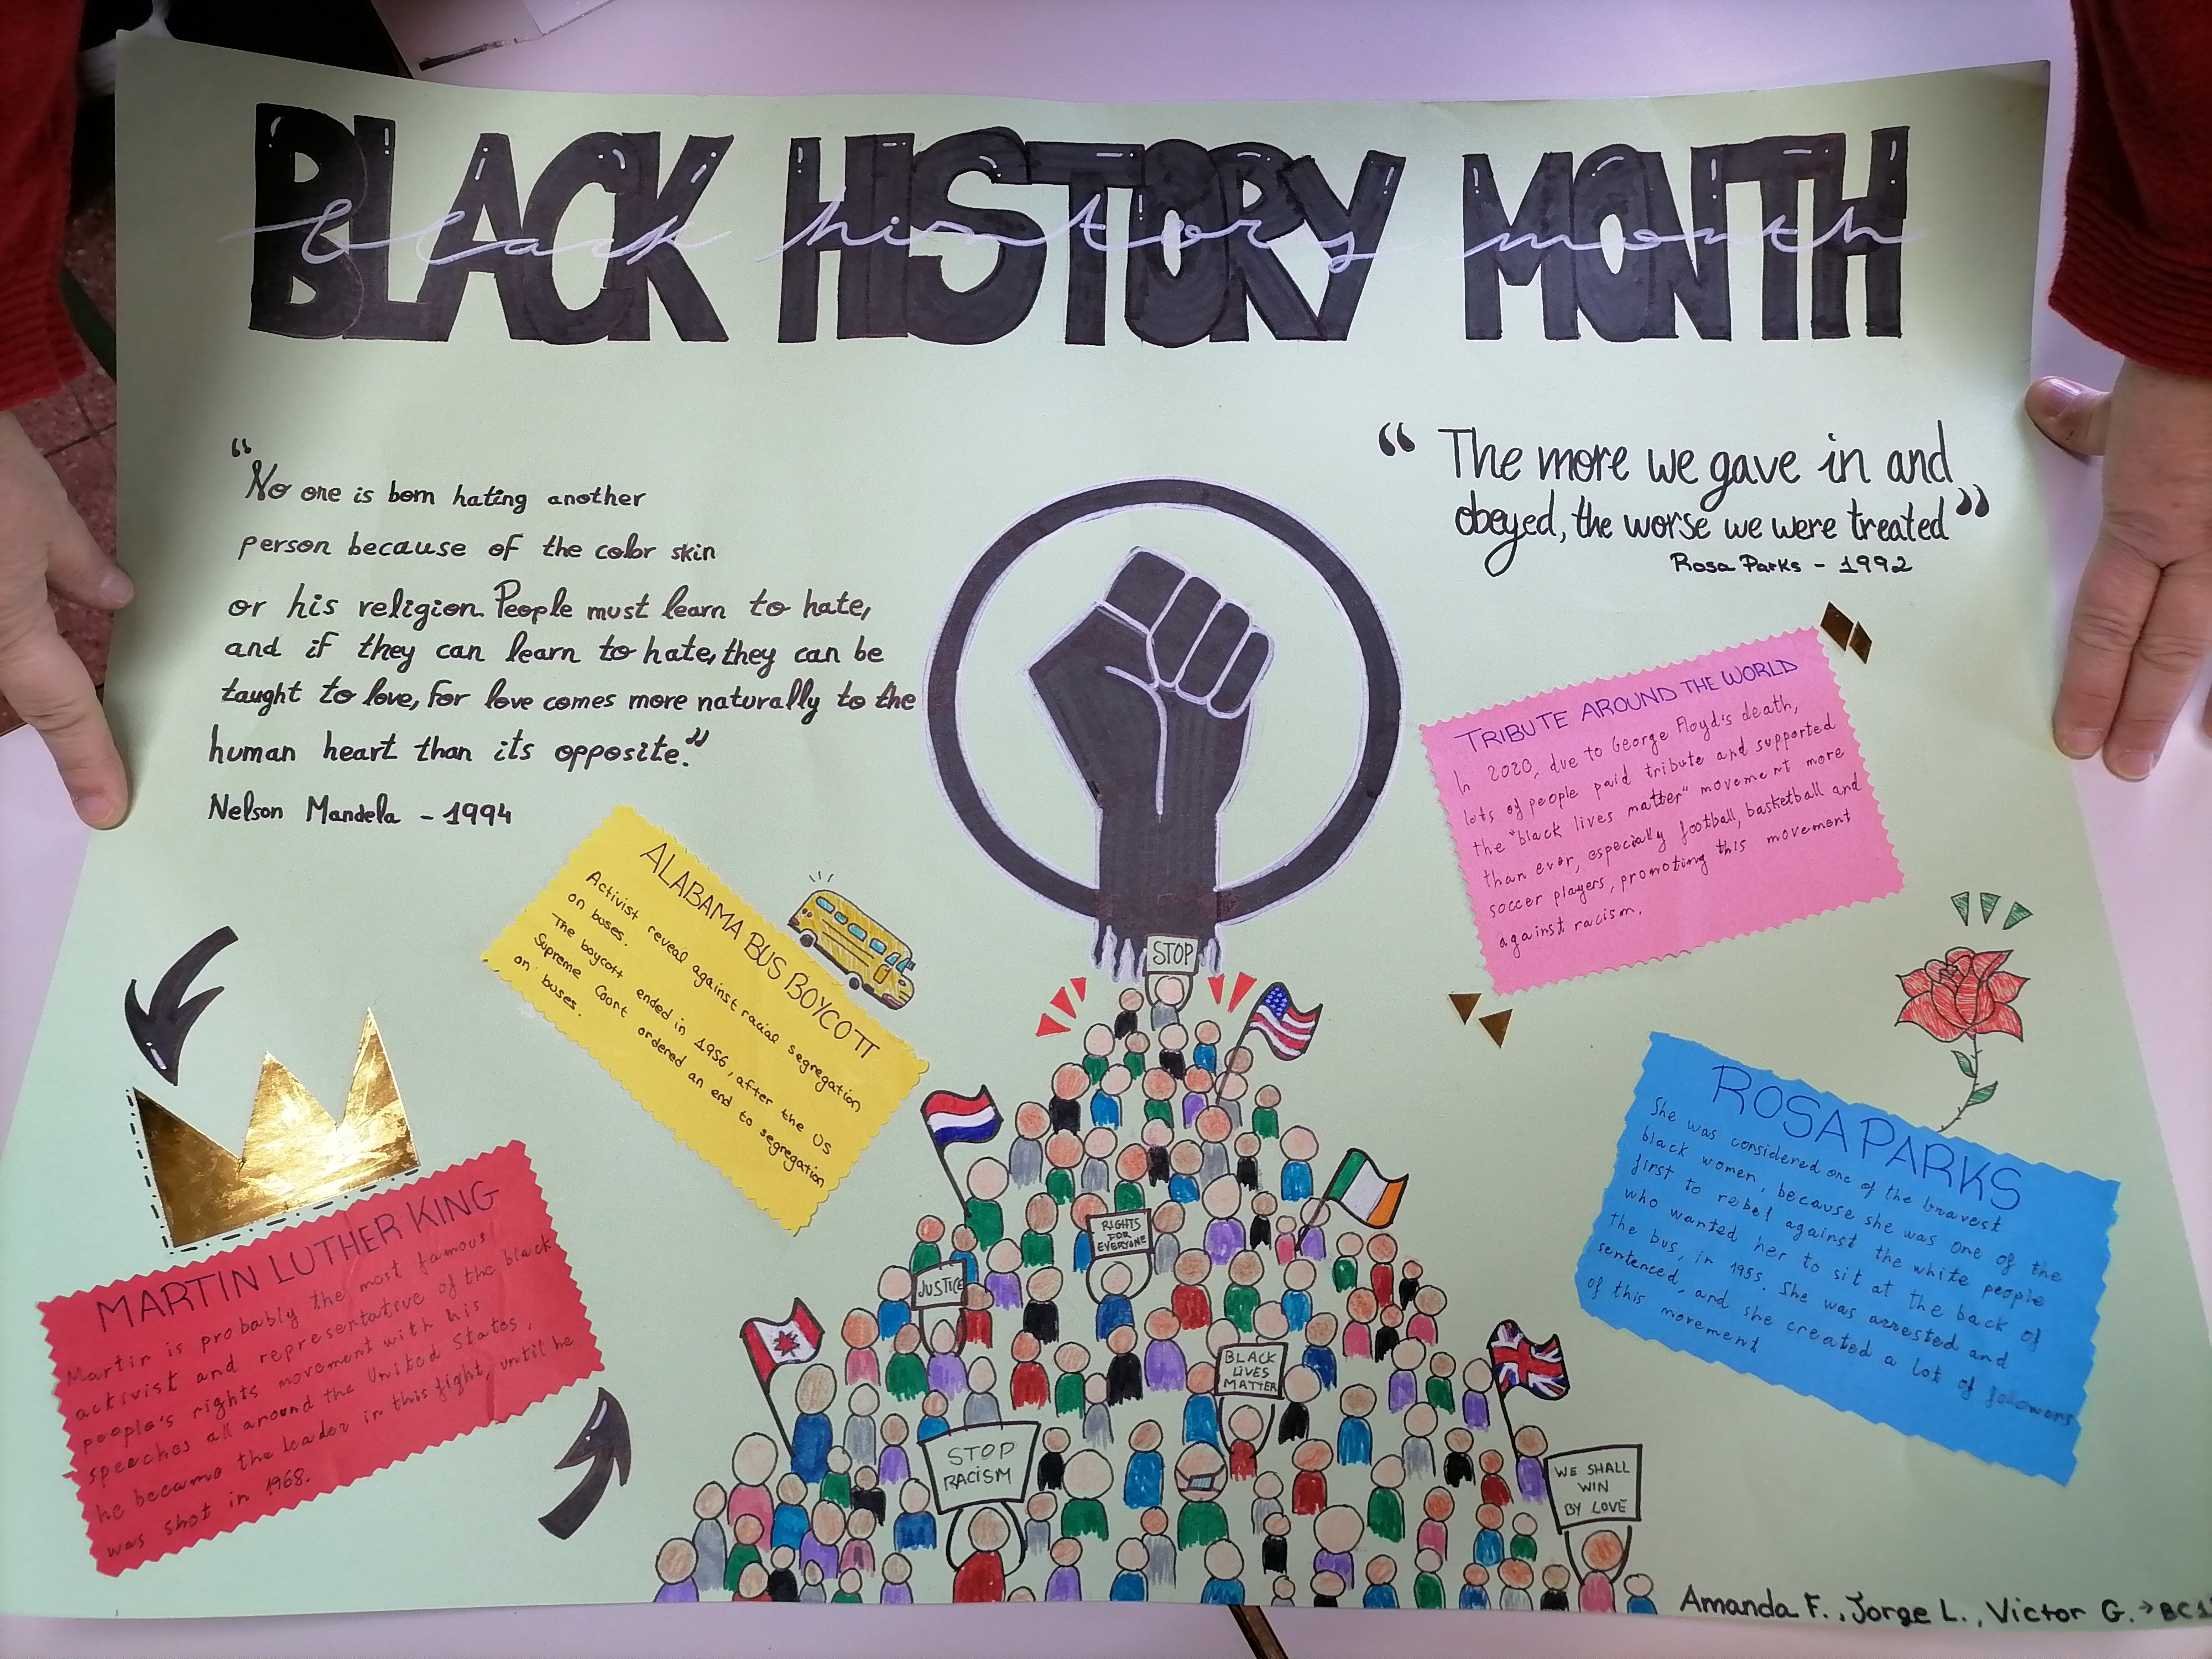 BLACK HISTORY MONTH
black history month
“No one is born hating another
person because of the color skin
or his religion. People must learn to hate,
and if they can learn to hate, they can be
taught to love, for love comes more naturally to the
human heart than its opposite.”
Nelson Mandela - 1994
“The more we gave in and
obeyed, the worse we were treated”
Rosa Parks - 1992
TRIBUTE AROUND THE WORLD
In 2020, due to George Floyd's death,
lots of people paid tribute and supported
the "black lives matter" movement more
than ever, especially football, basketball and
soccer players, promoting this movement
against racism.
ALABAMA BUS BOYCOTT
Activist reveal against racial segregation
on buses.
The boycott ended in 1956, after the US
Supreme Coort ordered an end to segregation
on buses.
MARTIN LUTHER KING
Martin is probably the most famous
activist and representative of the black
people's rights movement with his
speeches all around the United States,
he became the leader in this fight, until he
was shot in 1968.
ROSA PARKS
She was considered one of the bravest
black women, because she was one of the
first to rebel against the white people
who wanted her to sit at the back of
the bus, in 1955. She was arrested and
sentenced, and she created a lot of followers
of this movement
STOP
RIGHTS
FOR
EVERYONE
JUSTICE
BLACK
LIVES
MATTER
STOP
RACISM
WE SHALL
WIN
BY LOVE
Amanda F., Jorge L., Victor G. →